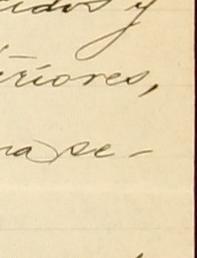 idos y
eriores,
na se-